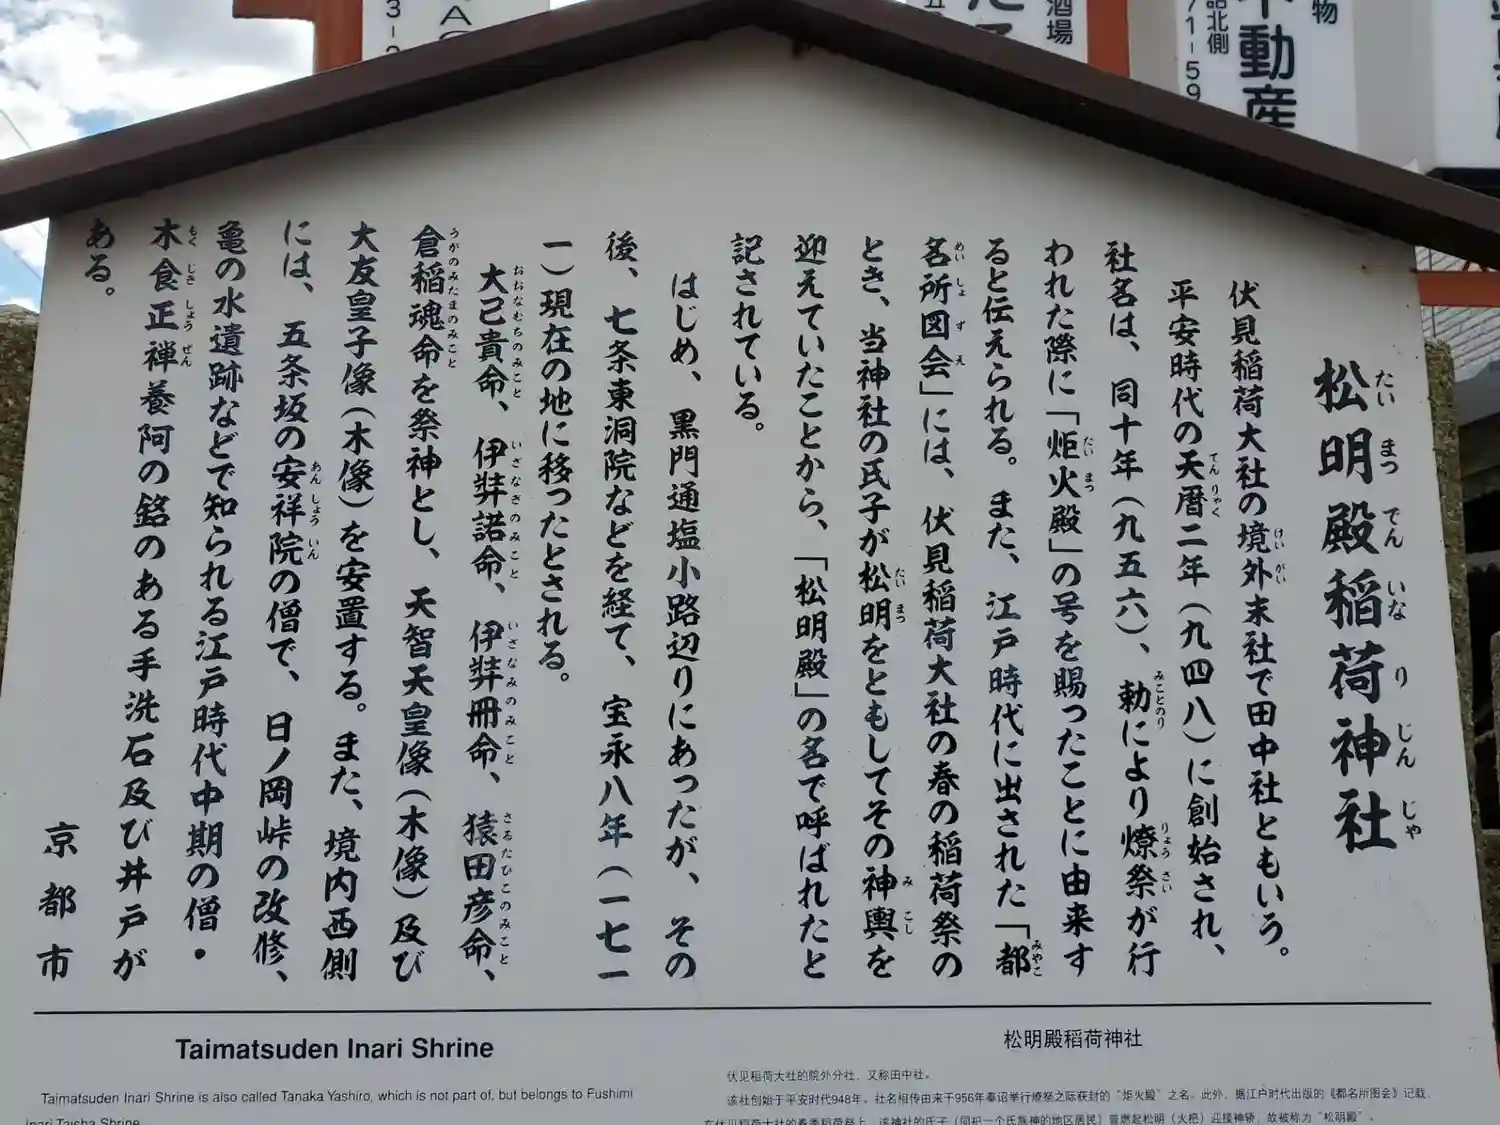 松明殿稲荷神社
伏見稲荷大社の境外末社で田中社ともいう。
平安時代の天暦二年(九四八)に創始され、
社名は、同十年(九五六)、勅により燎祭が行
われた際に「炬火殿」の号を賜ったことに由来す
ると伝えられる。また、江戸時代に出された「都
名所図会」には、伏見稲荷大社の春の稲荷祭の
とき、当神社の氏子が松明をともしてその神輿を
迎えていたことから、「松明殿」の名で呼ばれたと
記されている。
はじめ、黒門通塩小路辺りにあったが、その
後、七条東洞院などを経て、宝永八年(一七一
一)現在の地に移ったとされる。
大己貴命、伊弉諾命、伊弉冊命、猿田彦命、
倉稲魂命を祭神とし、天智天皇像(木像)及び
大友皇子像(木像)を安置する。また、境内西側
には、五条坂の安祥院の僧で、日ノ岡峠の改修、
亀の水遺跡などで知られる江戸時代中期の僧・
木食正禅養阿の銘のある手洗石及び井戸が
ある。
京都市
Taimatsuden Inari Shrine
Taimatsuden Inari Shrine is also called Tanaka Yashiro, which is not part of, but belongs to Fushimi
Inari Taisha Shrine.
松明殿稻荷神社
伏见稻荷大社的院外分社，又称田中社。
该社创始于平安时代948年。社名相传由来于956年奉诏举行燎祭之际获封的“炬火殿”之名。此外，据江户时代出版的《都名所图会》记载，
酒場
不動産
物
北側
71-59